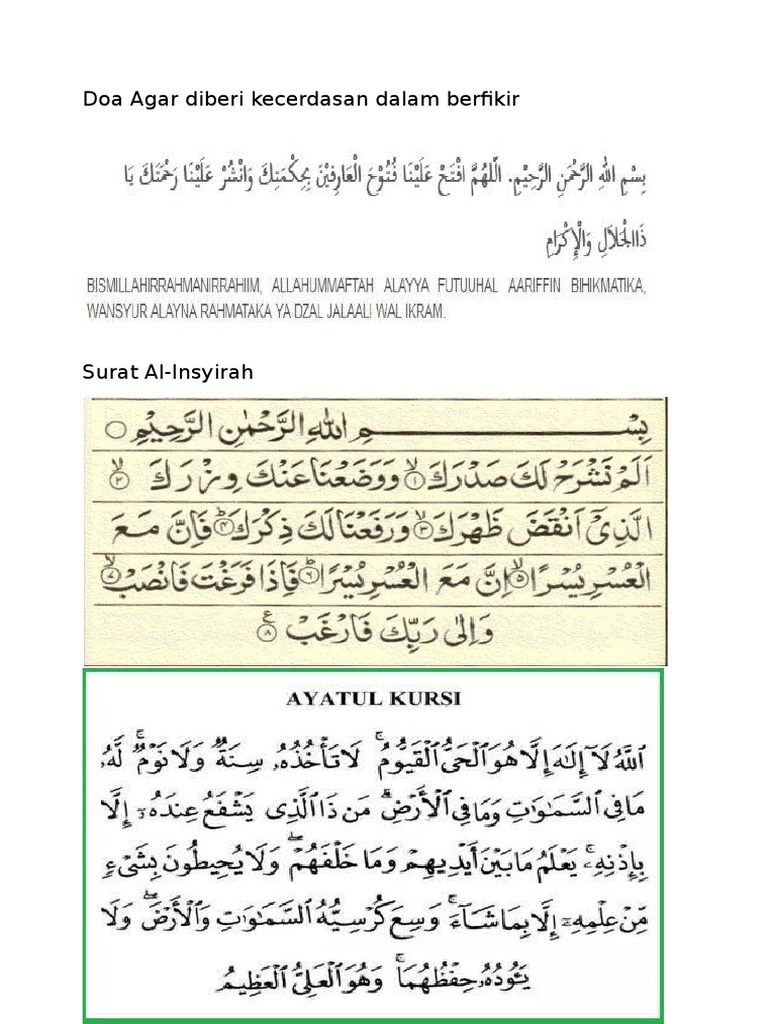 Doa Agar diberi kecerdasan dalam berfikir
بِسْمِ اللهِ الرَّحْمَنِ الرَّحِيْمِ. اَللّٰهُمَّ افْتَحْ عَلَيْنَا فُتُوْحَ الْعَارِفِيْنَ بِحِكْمَتِكَ وَانْشُرْ عَلَيْنَا رَحْمَتَكَ يَا
ذَاالْجَلَالِ وَالْإِكْرَامِ
BISMILLAHIRRAHMANIRRAHIIM, ALLAHUMMAFTAH ALAYYA FUTUUHAL AARIFFIN BIHIKMATIKA,
WANSYUR ALAYNA RAHMATAKA YA DZAL JALAALI WAL IKRAM.
Surat Al-Insyirah
بِسْـــــــــمِ اللّٰهِ الرَّحْمٰنِ الرَّحِيْمِ ○
اَلَمْ نَشْرَحْ لَكَ صَدْرَكَ ۙ﴿١﴾ وَوَضَعْنَا عَنْكَ وِزْرَكَ ۙ﴿٢﴾
الَّذِيْٓ اَنْقَضَ ظَهْرَكَ ۙ﴿٣﴾ وَرَفَعْنَا لَكَ ذِكْرَكَ ۗ﴿٤﴾ فَاِنَّ مَعَ
الْعُسْرِ يُسْرًا ۙ﴿٥﴾ اِنَّ مَعَ الْعُسْرِ يُسْرًا ۗ﴿٦﴾ فَاِذَا فَرَغْتَ فَانْصَبْ ۙ﴿٧﴾
وَاِلٰى رَبِّكَ فَارْغَبْ ࣖ﴿٨﴾
AYATUL KURSI
ٱللَّهُ لَآ إِلَٰهَ إِلَّا هُوَ ٱلْحَىُّ ٱلْقَيُّومُ ۚ لَا تَأْخُذُهُۥ سِنَةٌ وَلَا نَوْمٌ ۚ لَّهُۥ
مَا فِى ٱلسَّمَٰوَٰتِ وَمَا فِى ٱلْأَرْضِ ۗ مَن ذَا ٱلَّذِى يَشْفَعُ عِندَهُۥٓ إِلَّا
بِإِذْنِهِۦ ۚ يَعْلَمُ مَا بَيْنَ أَيْدِيهِمْ وَمَا خَلْفَهُمْ ۖ وَلَا يُحِيطُونَ بِشَىْءٍ
مِّنْ عِلْمِهِۦٓ إِلَّا بِمَا شَآءَ ۚ وَسِعَ كُرْسِيُّهُ ٱلسَّمَٰوَٰتِ وَٱلْأَرْضَ ۖ وَلَا
يَـُٔودُهُۥ حِفْظُهُمَا ۚ وَهُوَ ٱلْعَلِىُّ ٱلْعَظِيمُ